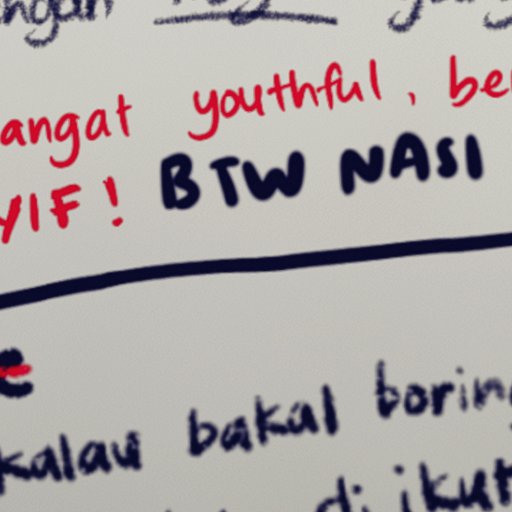 angat youthful, be
YIF! BTW NASI
e
kalau bakal boring
di ikut